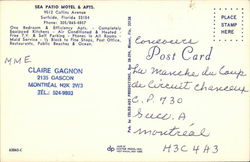 SEA PATIO MOTEL & APTS.
9512 Collins Avenue
Surfside, Florida 33154
Phone: 305/865-4857
One Bedroom & Efficiency Apts. - Completely
Equipped Kitchens - Air Conditioned & Heated
Free T.V. & Off St. Parking - Phones in All Rooms
Maid Service - ½ Block to Fine Shops, Post Office,
Restaurants, Public Beaches & Ocean.
MME
CLAIRE GAGNON
2135 GASCON
MONTREAL H2K 2W3
TÉL.: 524-9893
Post Card
Concours
La Manche du Coup
de Circuit chanceux
C.P. 730
Succ. A
Montréal
H3C 4A3